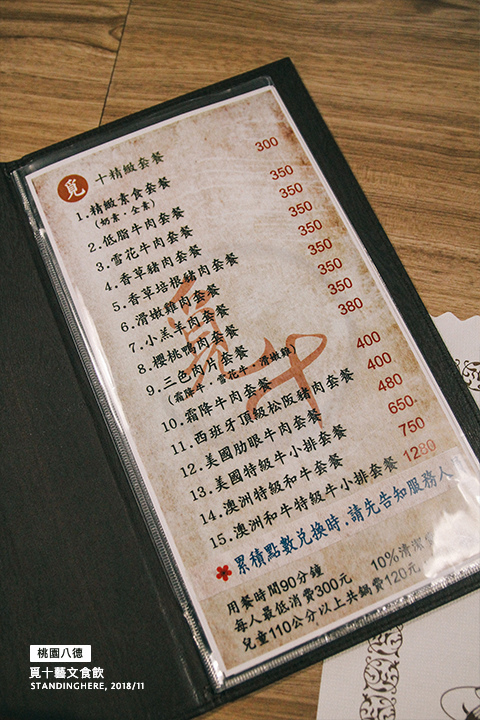 覓
十精緻套餐
1.精緻素食套餐 300
(奶素‧全素)
2.低脂牛肉套餐 350
3.雪花牛肉套餐 350
4.香草豬肉套餐 350
5.香草培根豬肉套餐 350
6.滑嫩雞肉套餐 350
7.小羔羊肉套餐 350
8.櫻桃鴨肉套餐 350
9.三色肉片套餐 380
(霜降牛‧雪花牛‧滑嫩雞)
10.霜降牛肉套餐 400
11.西班牙頂級松阪豬肉套餐 400
12.美國肋眼牛肉套餐 480
13.美國特級牛小排套餐 650
14.澳洲特級和牛套餐 750
15.澳洲和牛特級牛小排套餐 1280
累積點數兌換時,請先告知服務人
用餐時間90分鐘 10%清潔
每人最低消費300元
兒童110公分以上共鍋費120元,
桃園八德
覓十藝文食飲
STANDINGHERE, 2018/11